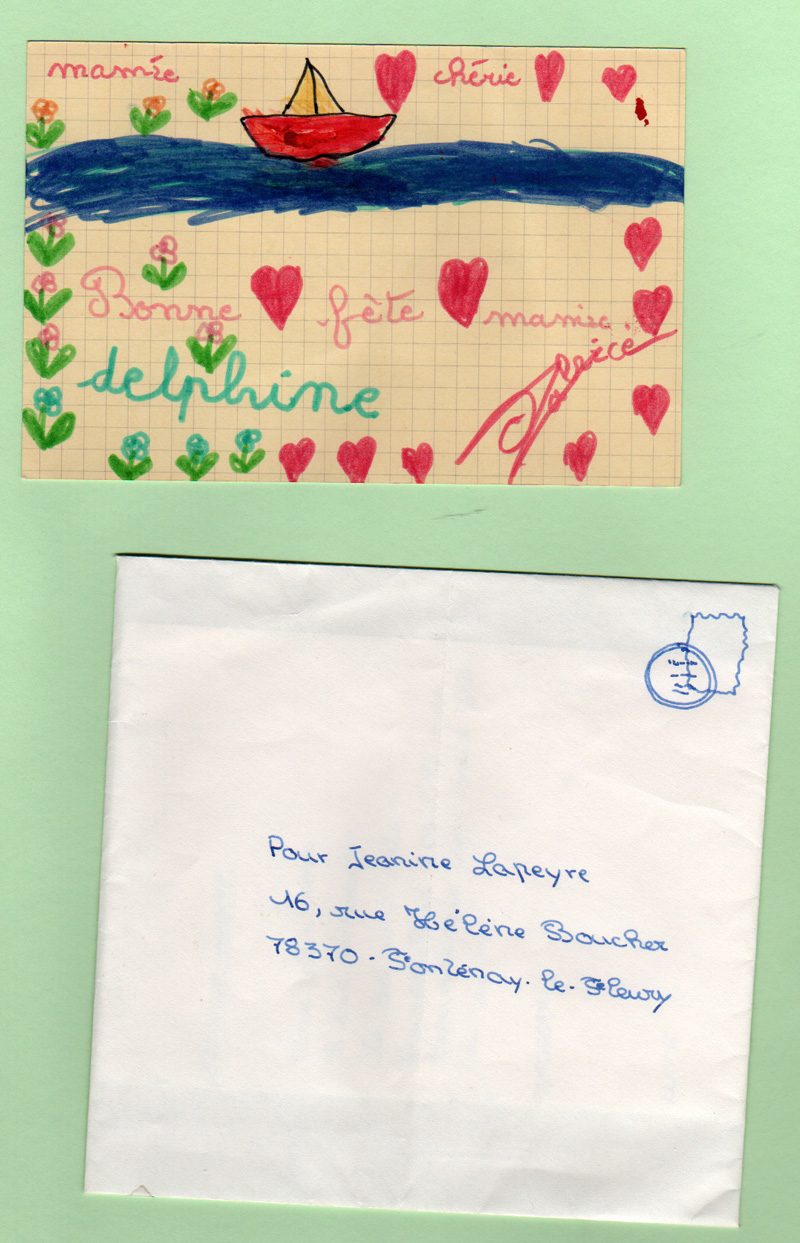 mamie chérie
Bonne fête mamie
delphine
Pour Jeanine Lapeyre
16, rue Hélène Boucher
78370 - Fontenay-le-Fleury